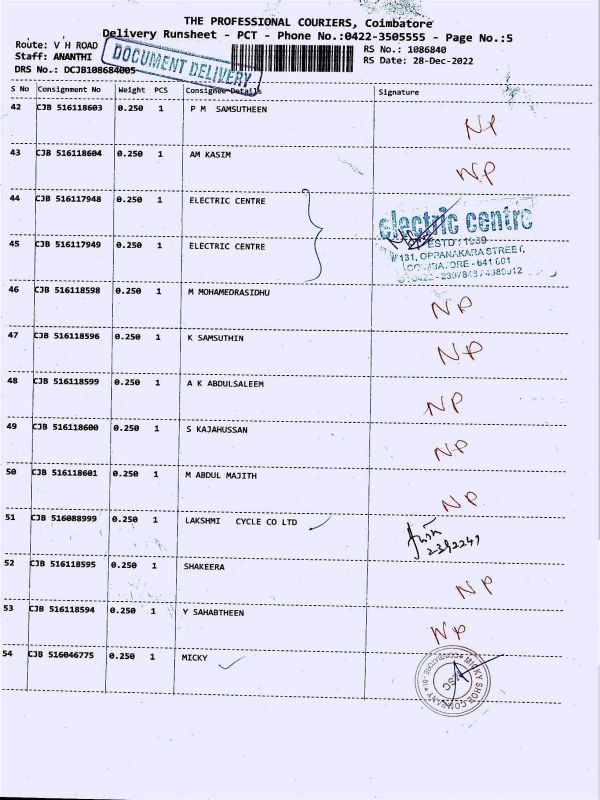 THE PROFESSIONAL COURIERS, Coimbatore
Delivery Runsheet - PCT - Phone No.:0422-3505555 - Page No.:5
Route: V H ROAD RS No.: 1086840
Staff: ANANTHI RS Date: 28-Dec-2022
DRS No.: DCJB108684005
DOCUMENT DELIVERY
S No Consignment No Weight PCS Consignee Details Signature
42 CJB 516118603 0.250 1 P M SAMSUTHEEN NP
43 CJB 516118604 0.250 1 AM KASIM NP
44 CJB 516117948 0.250 1 ELECTRIC CENTRE
45 CJB 516117949 0.250 1 ELECTRIC CENTRE
electric centre
ESTD : 1939
# 131, OPPANAKARA STREET,
COIMBATORE - 641 001
46 CJB 516118598 0.250 1 M MOHAMEDRASIDHU NP
47 CJB 516118596 0.250 1 K SAMSUTHIN NP
48 CJB 516118599 0.250 1 A K ABDULSALEEM NP
49 CJB 516118600 0.250 1 S KAJAHUSSAN NP
50 CJB 516118601 0.250 1 M ABDUL MAJITH NP
51 CJB 516088999 0.250 1 LAKSHMI CYCLE CO LTD
2392249
52 CJB 516118595 0.250 1 SHAKEERA NP
53 CJB 516118594 0.250 1 Y SAHABTHEEN NP
54 CJB 516046775 0.250 1 MICKY
MICKY SHOE COMPANY
COIMBATORE
MSC